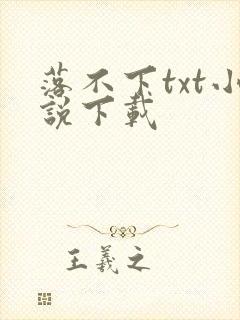 落不下txt小
説下載
王羲之